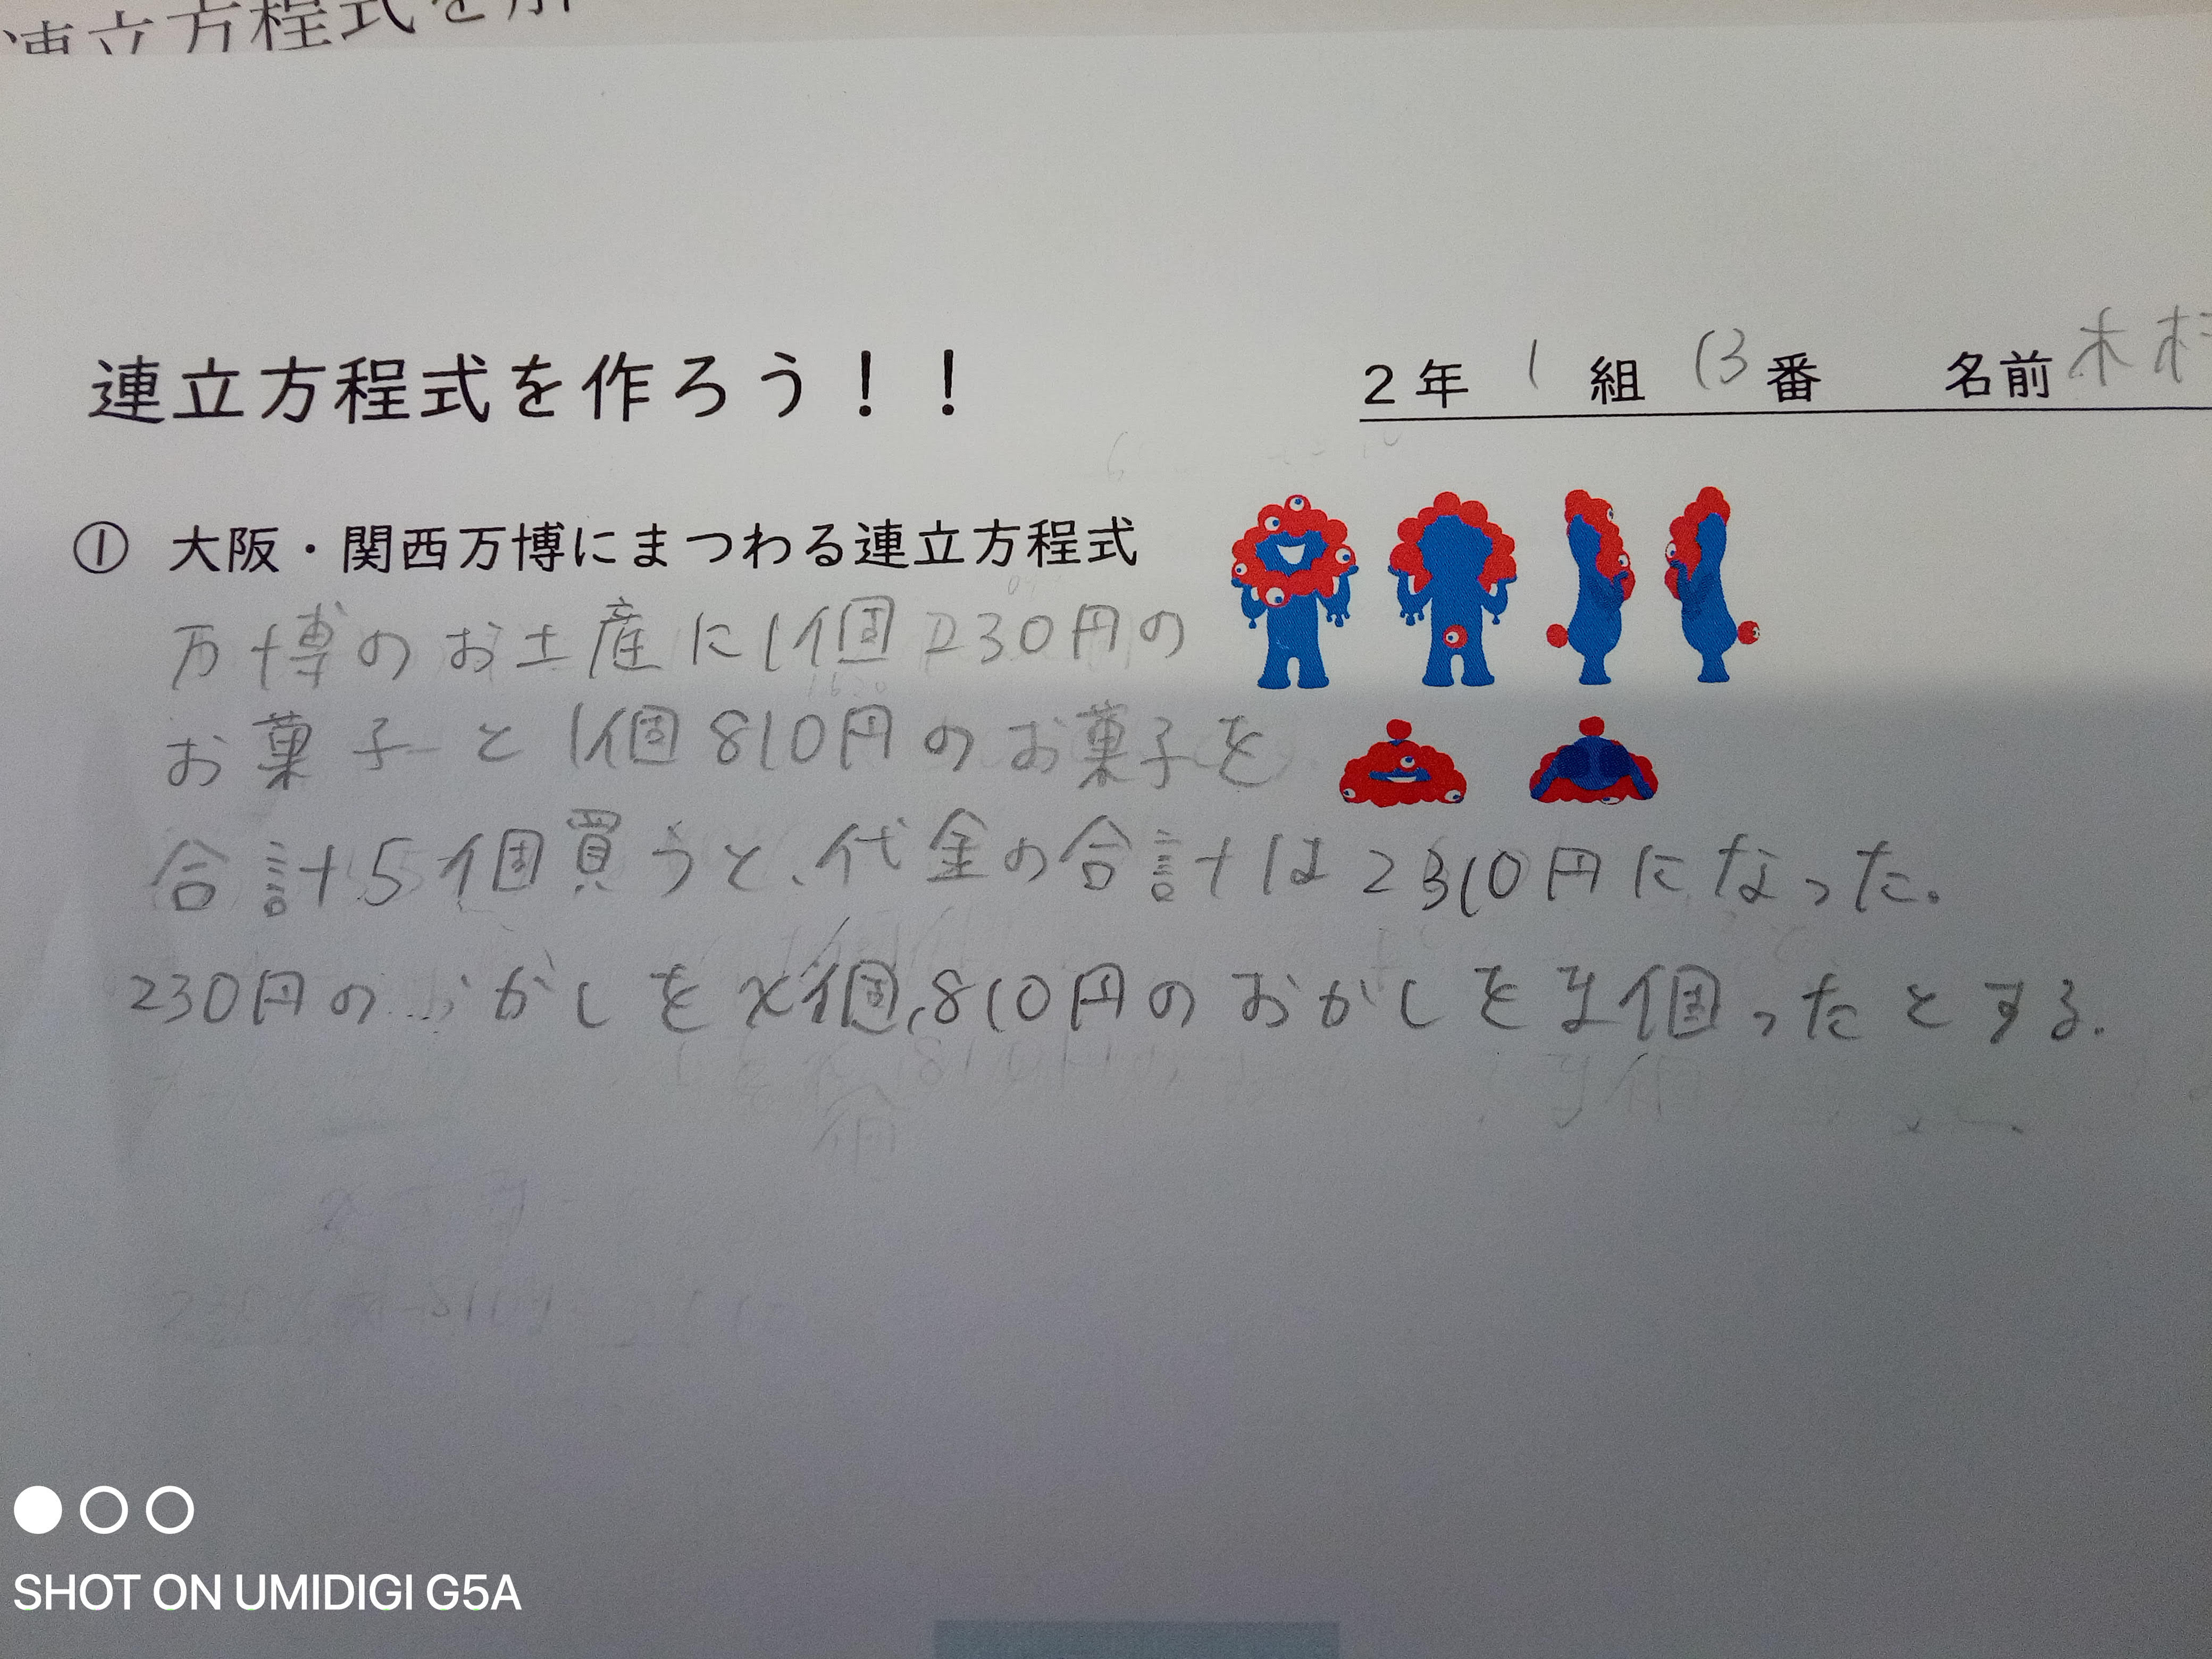 連立方程式を
連立方程式を作ろう！！
2年 1 組 13 番 名前 木村
① 大阪・関西万博にまつわる連立方程式
万博のお土産に1個230円の
お菓子と1個810円のお菓子を
合計5個買うと、代金の合計は2310円になった。
230円のおかしをx個,810円のおかしをy個ったとする.
SHOT ON UMIDIGI G5A